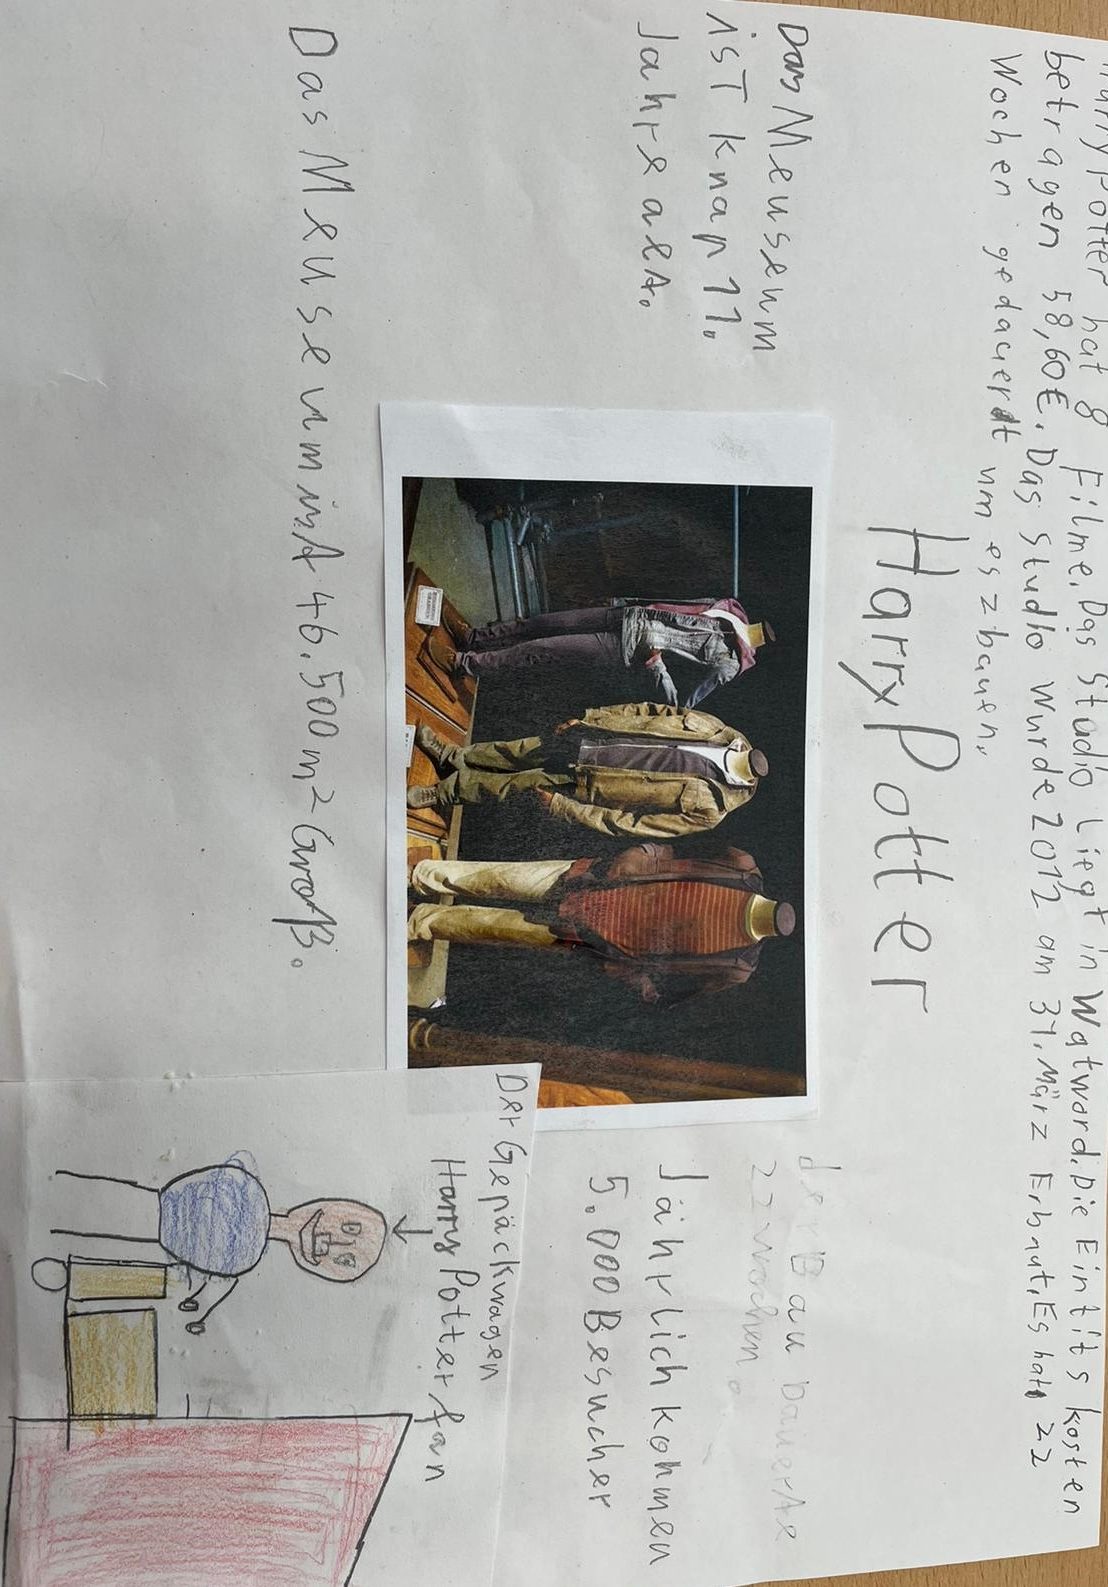 Harry Potter hat 8 Filme. Das Studio Liegt in Watword. Die Eintits kosten
betragen 58,60€. Das Studio wurde 2012 am 31. März Erbaut. Es hat 22
Wochen gedauerdt um es z bauen.
Harry Potter
Das Meuseum
isT knap 11.
Jahre alt.
der Bau dauerte
22 wochen.
Jährlich kommen
5.000 Besucher
Das Meuseum ist 46.500m2 Groß.
Der Gepäckwagen
Harry Potter fan